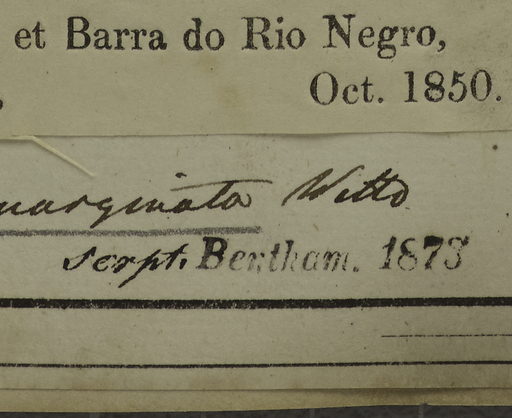 et Barra do Rio Negro,
Oct. 1850.
marginata Willd
scrpt. Bentham. 1873